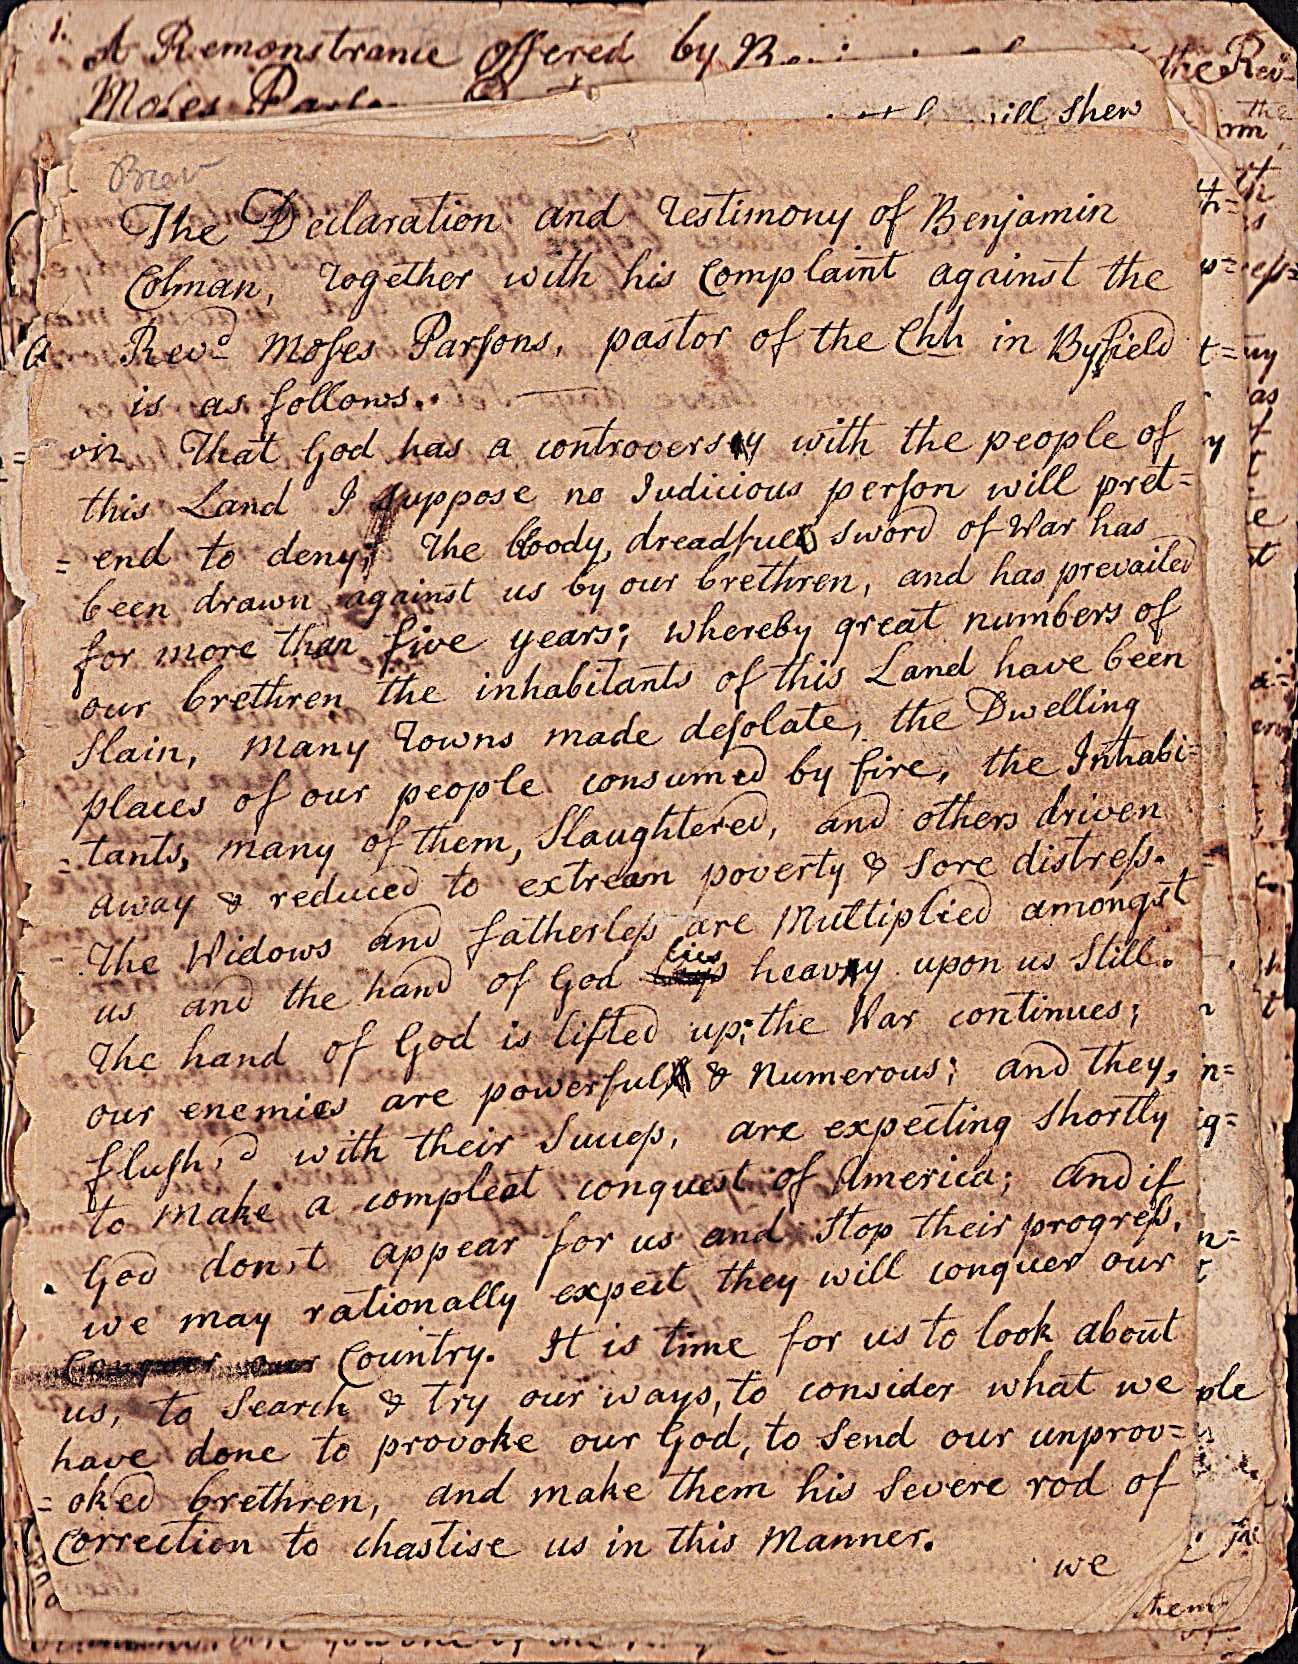 1. A Remonstrance offered by the Revd
Moses
will shew
The Declaration and Testimony of Benjamin
Colman, Together with his Complaint against the
Revd. Moses Parsons, pastor of the Chh in Byfield
is as follows.
viz That God has a controversy with the people of
this Land I suppose no Judicious person will pret=
=end to deny; The bloody, dreadful sword of War has
been drawn against us by our brethren, and has prevailed
for more than five years; whereby great numbers of
our brethren the inhabitants of this Land have been
slain, many Towns made desolate, the Dwelling
places of our people consumed by fire, the Inhabi=
=tants, many of them, slaughtered, and others driven
away & reduced to extream poverty & sore distress.
The Widows and fatherless are Multiplied amongst
us and the hand of God lies heavy upon us still.
The hand of God is lifted up; the War continues;
our enemies are powerful & Numerous; and they,
flush,d with their Success, are expecting shortly
to make a compleat conquest of America; and if
God don,t appear for us and stop their progress,
we may rationally expect they will conquer our
Conquer our Country. It is time for us to look about
us, to search & try our ways, to consider what we
have done to provoke our God, to send our unprov=
=oked brethren, and make them his severe rod of
correction to chastise us in this Manner.
we
them